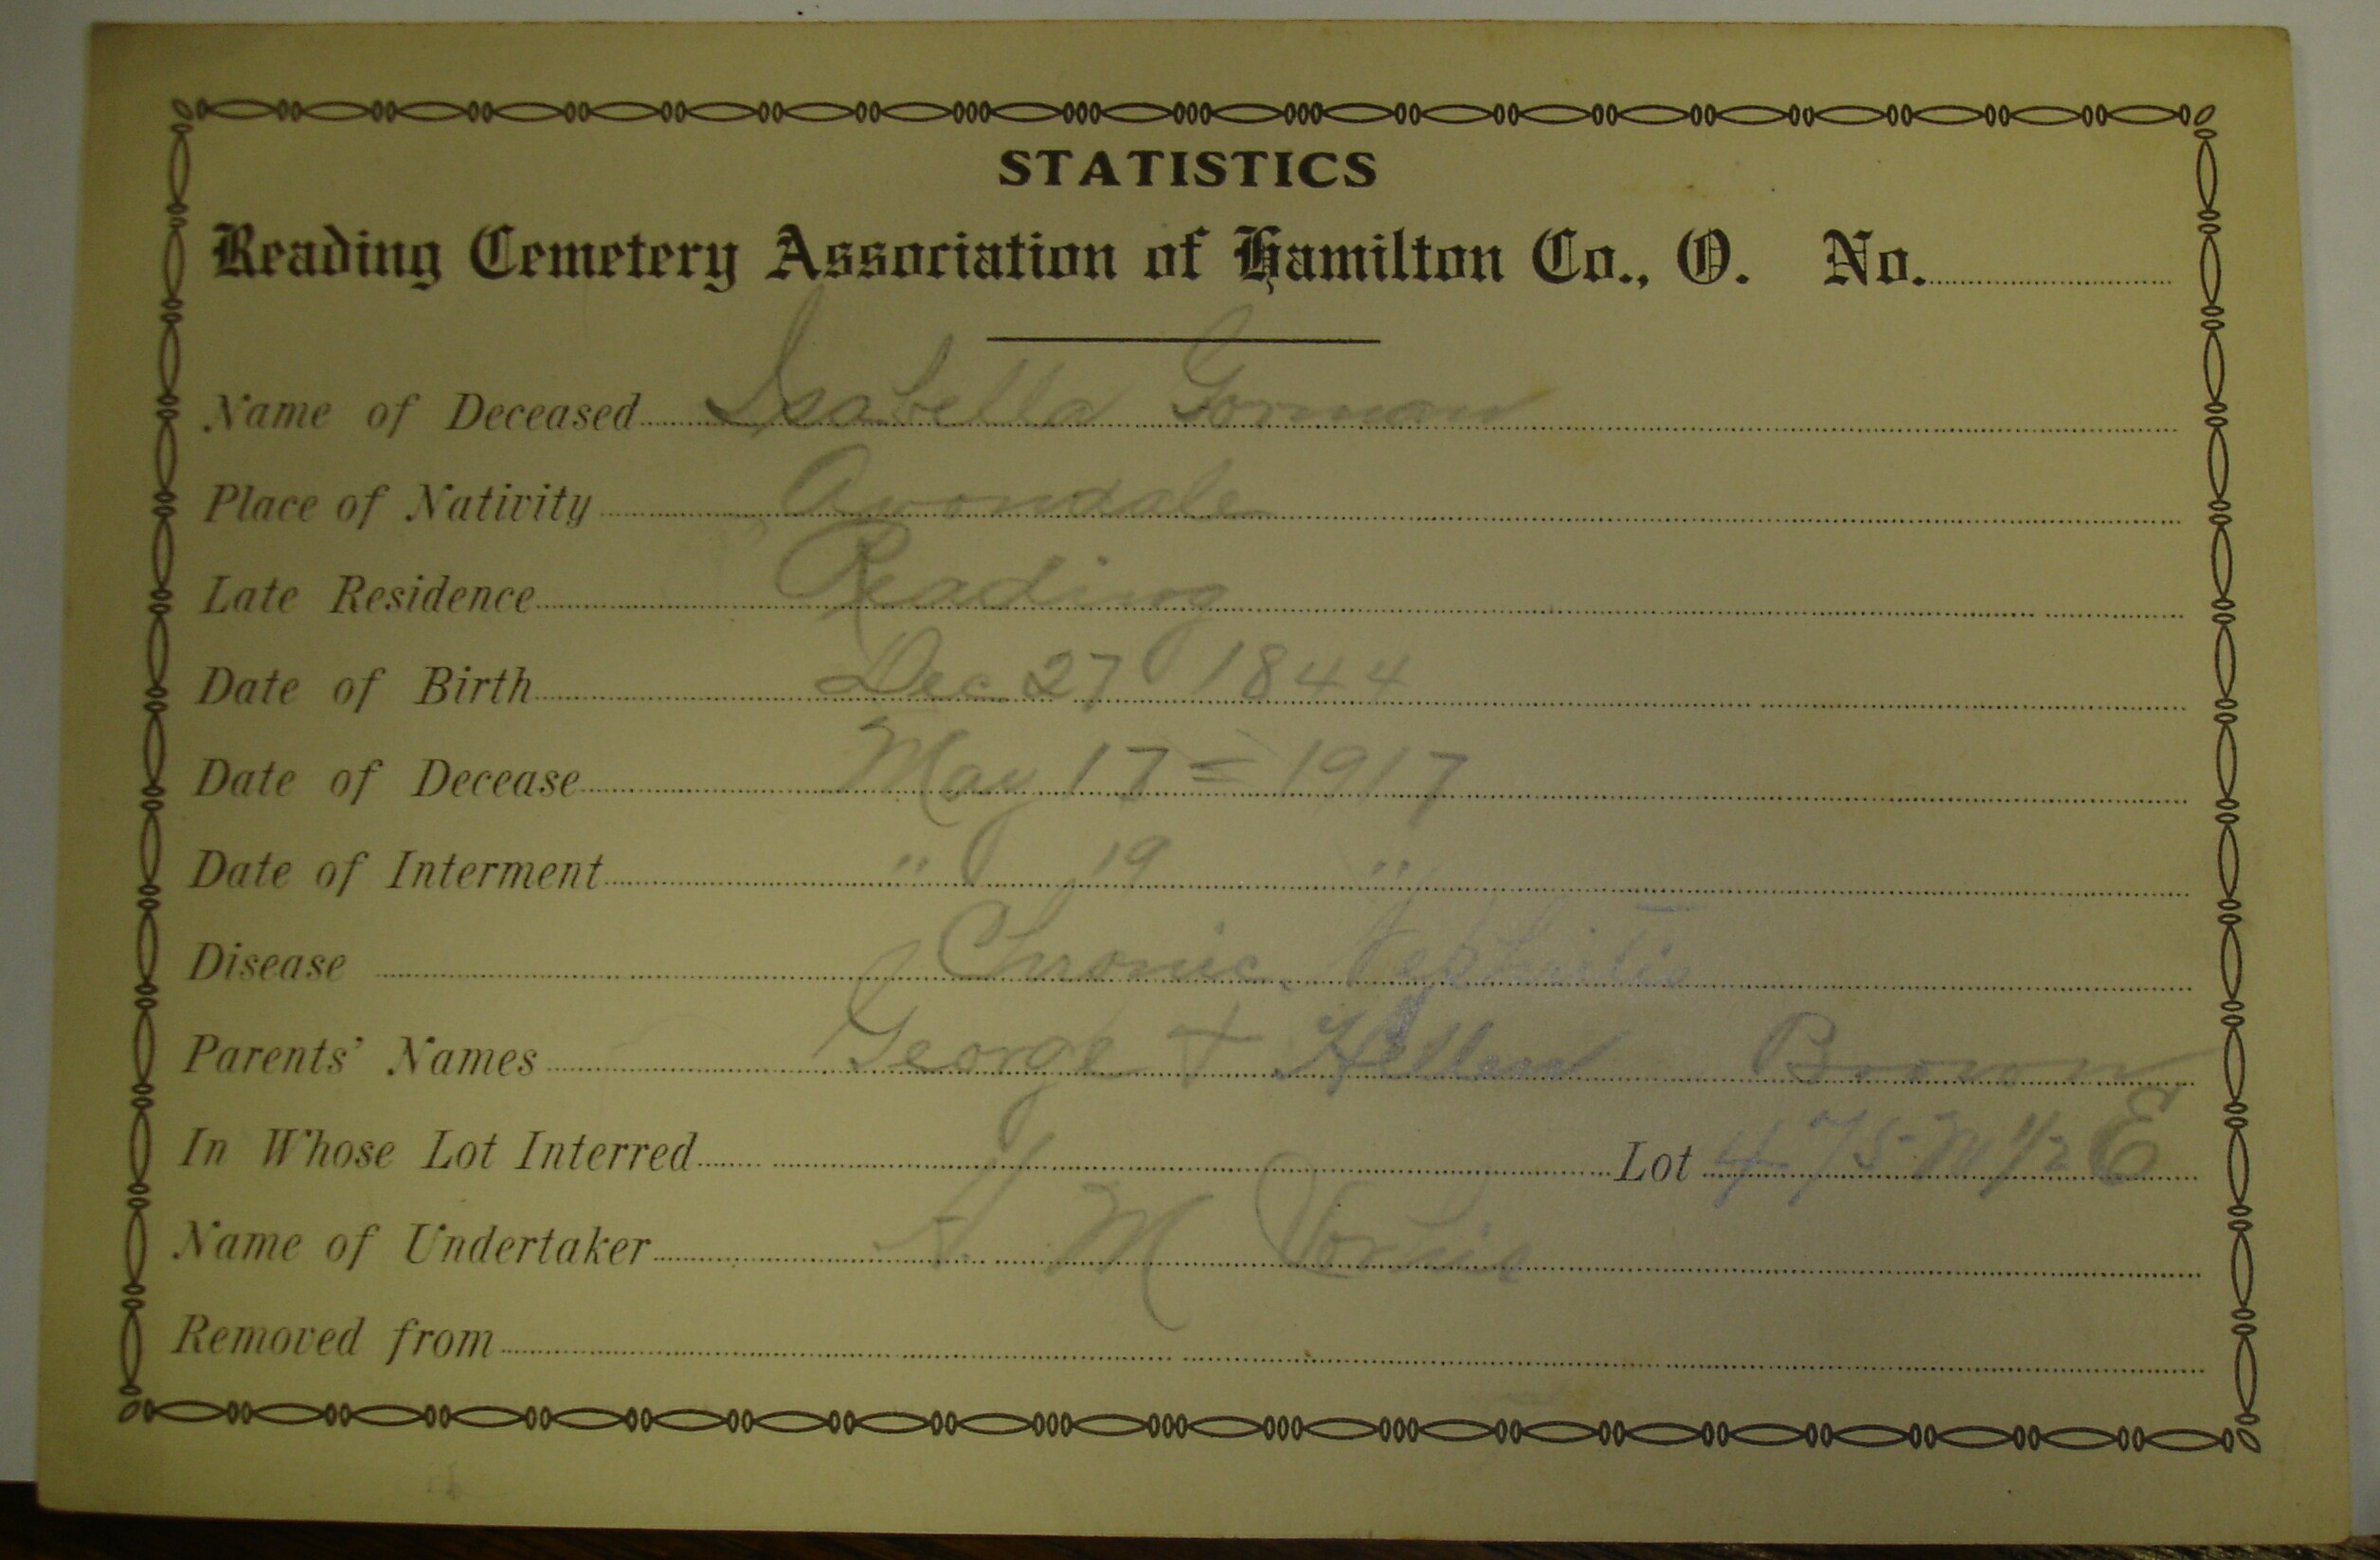 STATISTICS
Reading Cemetery Association of Hamilton Co., O. No.
Name of Deceased Isabella Gorman
Place of Nativity Avondale
Late Residence Reading
Date of Birth Dec 27 1844
Date of Decease May 17 = 1917
Date of Interment " 19 "
Disease Chronic Nephritis
Parents' Names George + Hellen Brown
In Whose Lot Interred Lot 475 1/2 E
Name of Undertaker M
Removed from